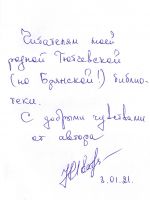 Читателям моей
родной Тютчевской
(но Брянской!) библио-
теки.
С добрыми чувствами
от автора
3.01.21.